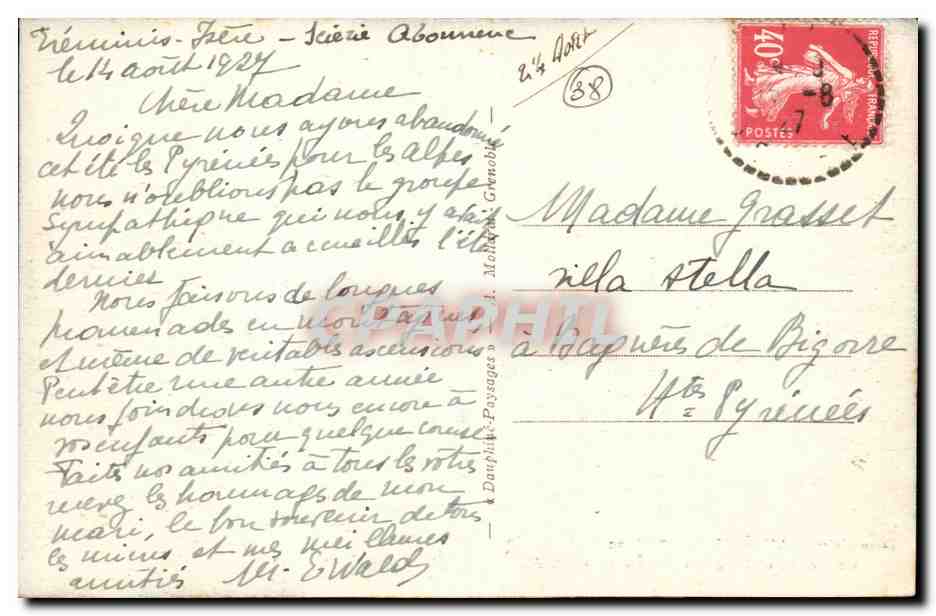 Tréminis-Isère - Scierie Abonnenc
le 14 août 1927
Chère Madame
Quoique nous ayons abandonné
cet été les Pyrénées pour les alpes
nous n'oublions pas le groupe
sympathique qui nous y avait
aimablement accueillis l'été
dernier
Nous faisons de longues
promenades en montagnes
et même de véritables ascensions
Peut être une autre année
nous joindrons nous encore à
vos enfants pour quelque course
Faites nos amitiés à tous les votres
recevez les hommages de mon
mari, le bon souvenir de tous
les miens et mes meilleures
amitiés M. Ewald
« Dauphiné-Paysages » — J. Mollaret, Grenoble —
CPAPHIL
38
40
REPUBLIQUE FRANÇAISE
POSTES
-8
27
Madame Grasset
villa stella
à Bagnères de Bigorre
Htes Pyrénées